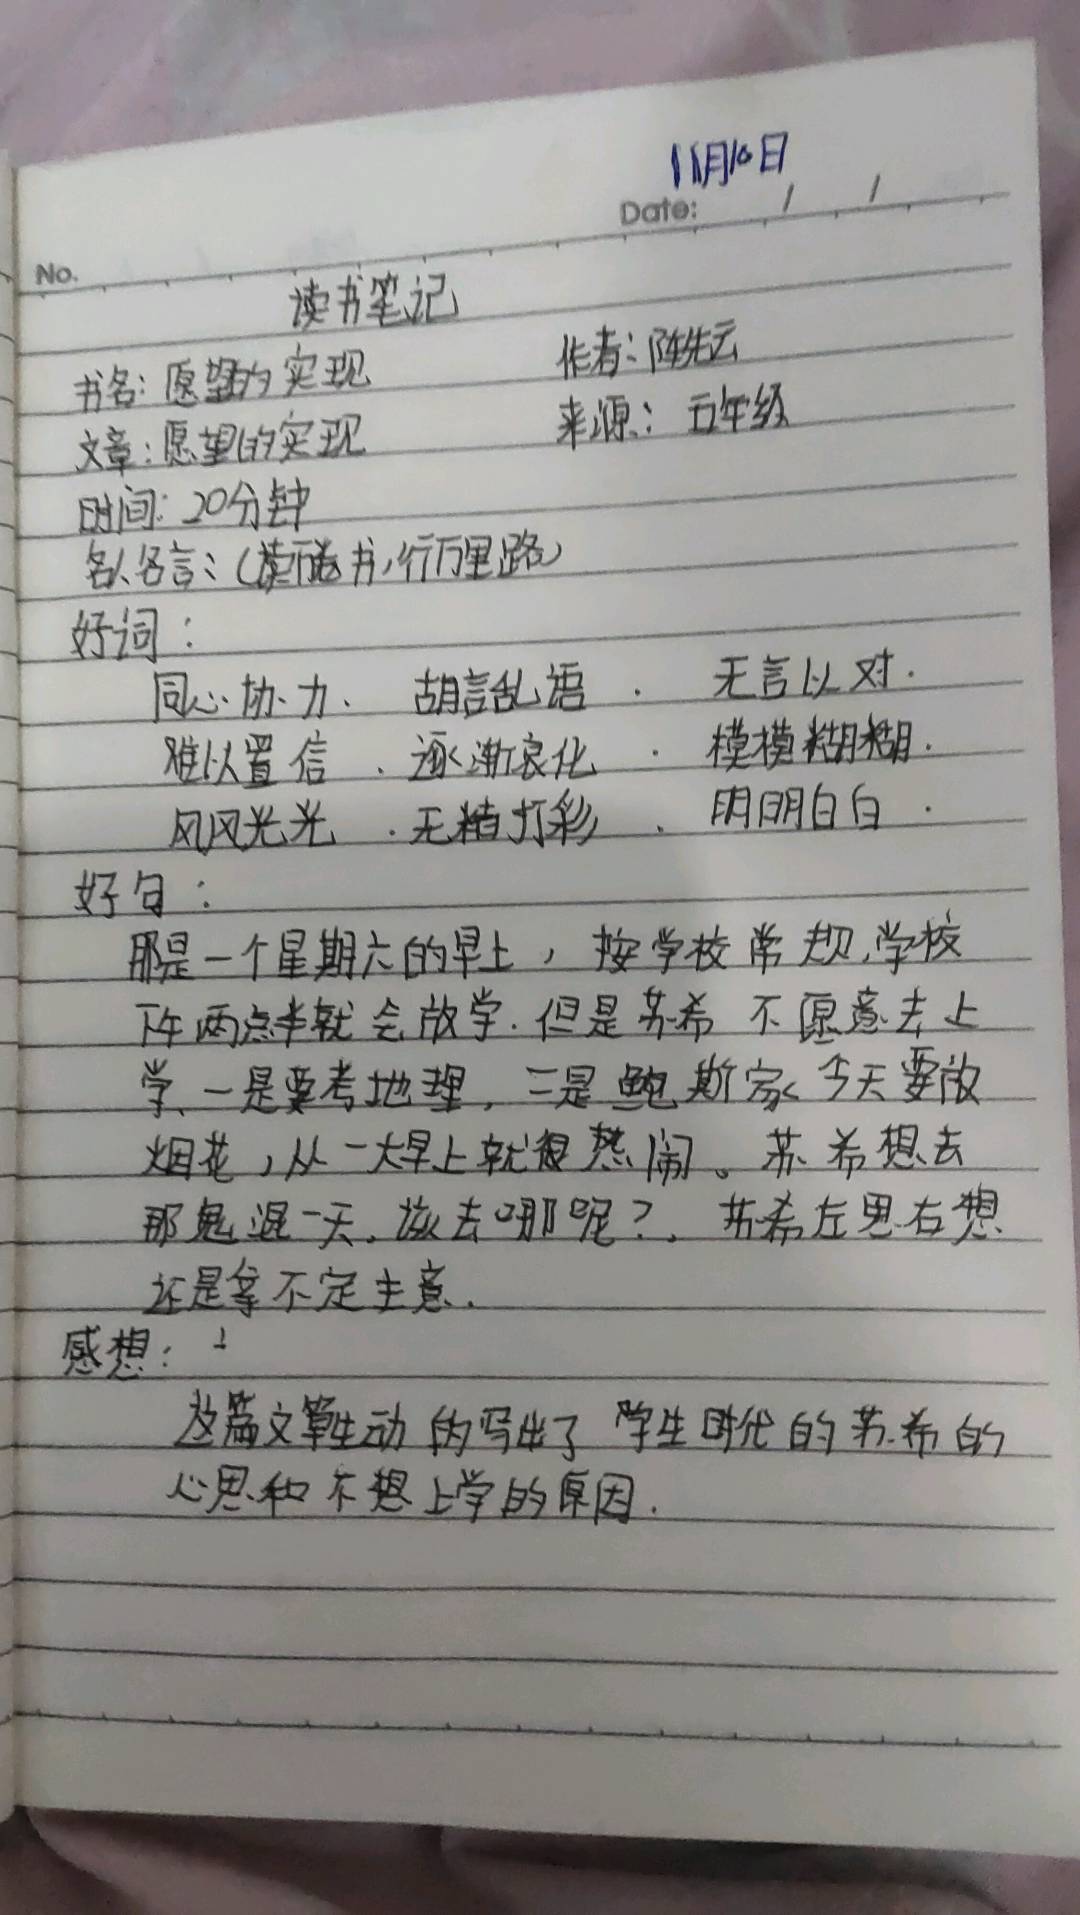 11月10日
Date: / /
No.
读书笔记
书名：愿望的实现 作者：陈先云
文章：愿望的实现 来源：五年级
时间：20分钟
名人名言：（读万卷书，行万里路）
好词：
同心协力． 胡言乱语． 无言以对．
难以置信．逐渐浪化．模模糊糊．
风风光光．无精打彩．明明白白．
好句：
那是一个星期六的早上，按学校常规，学校
下午两点半就会放学．但是苏希不愿意去上
学、一是要考地理，二是鲍斯家今天要放
烟花，从一大早上就很热闹。苏希想去
那鬼混一天，该去哪呢？．苏希左思右想
还是拿不定主意．
感想：
这篇文章生动的写出了学生时代的苏希的
心思和不想上学的原因．